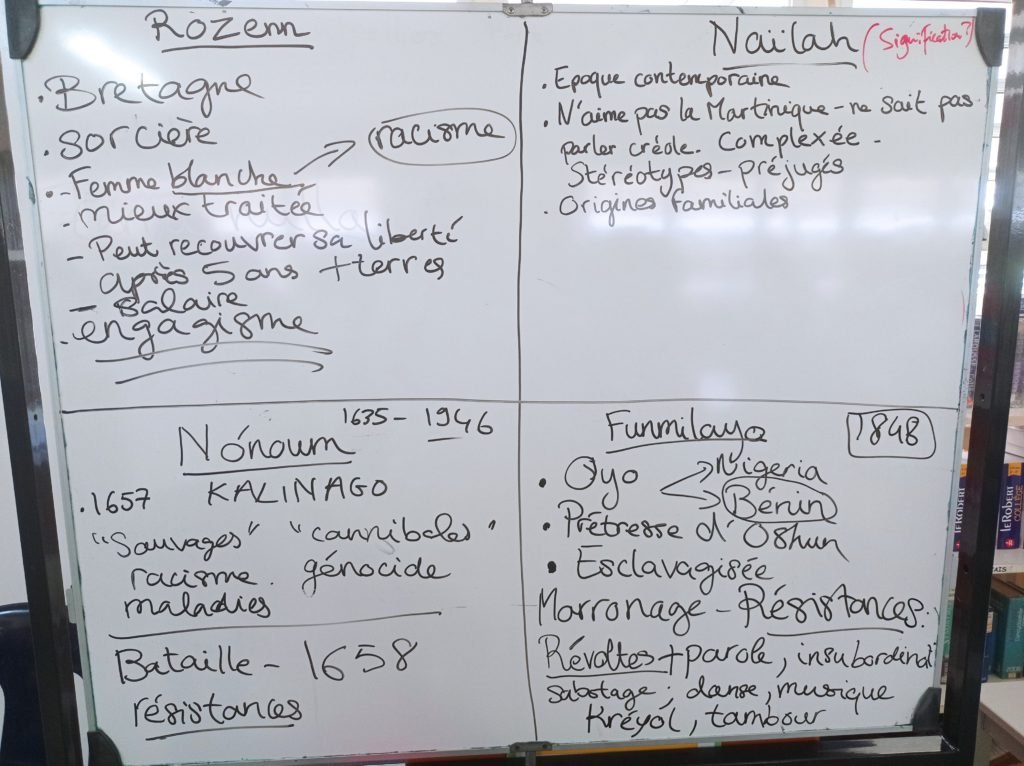 Rozenn
. Bretagne
. sorcière
. - Femme blanche, racisme
- mieux traitée
- Peut recouvrer sa liberté
après 5 ans + terres
- salaire
. engagisme
Naïlah (Signification?)
. Epoque contemporaine
. N'aime pas la Martinique - ne sait pas
parler créole. Complexée -
Stéréotypes - préjugés
. Origines familiales
1635 - 1946
Nónoum
KALINAGO
. 1657
"Sauvages" "cannibales"
racisme. génocide
maladies
Bataille - 1658
résistances
Funmilayo 1848
. Oyo Nigeria
Bénin
. Prêtresse d'Oshun
. Esclavagisée
Marronage - Résistances.
Révoltes + parole, insubordinat°
sabotage ; danse, musique
Kréyòl, tambour
leROBERT
COLLÈGE